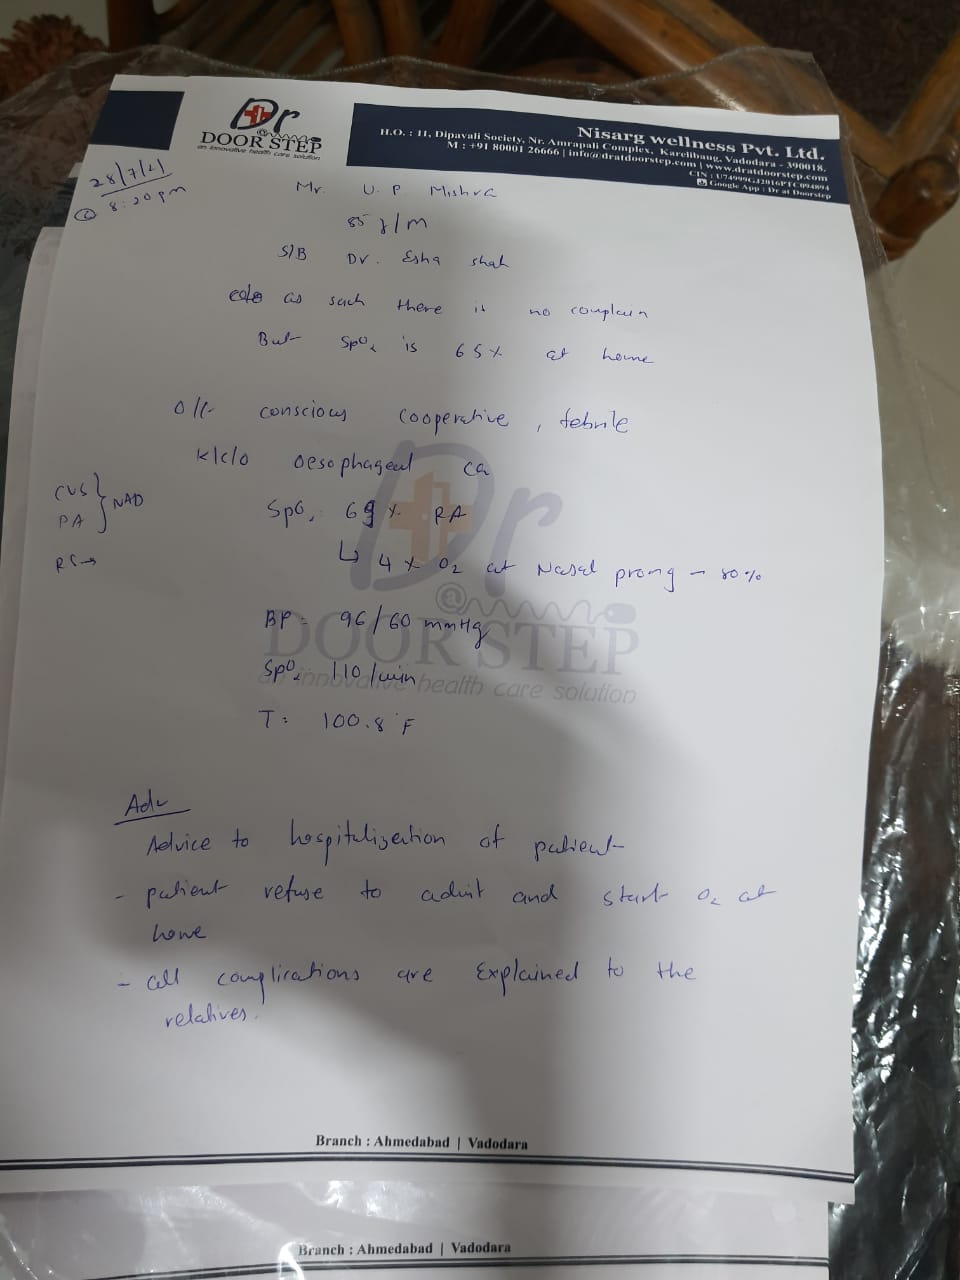 Dr
@
DOOR STEP
an innovative health care solution
Nisarg wellness Pvt. Ltd.
H.O. : 11, Dipavali Society, Nr. Amrapali Complex, Karelibaug, Vadodara - 390018.
M : +91 80001 26666 | info@dratdoorstep.com | www.dratdoorstep.com
CIN : U74999GJ2016PTC094894
Google App : Dr at Doorstep
28/7/21
@ 8:20 pm
Mr. U. P. Mishra
85 y/M
S/B Dr. Esha shah
as such there is no complain
But SpO2 is 65% at home
O/E conscious cooperative, febrile
K/c/o oesophageal ca
CVS } NAD
PA
RS→
SpO2: 69% RA
↳ 4 O2 at Nasal prong - 80%
BP = 96/60 mmHg
SpO2: 110/min
T: 100.8°F
Dr
@
DOOR STEP
an innovative health care solution
Adv
Advice to hospitalization of patient
- patient refuse to admit and start O2 at
home
- all complications are Explained to the
relatives.
Branch : Ahmedabad | Vadodara
Branch : Ahmedabad | Vadodara